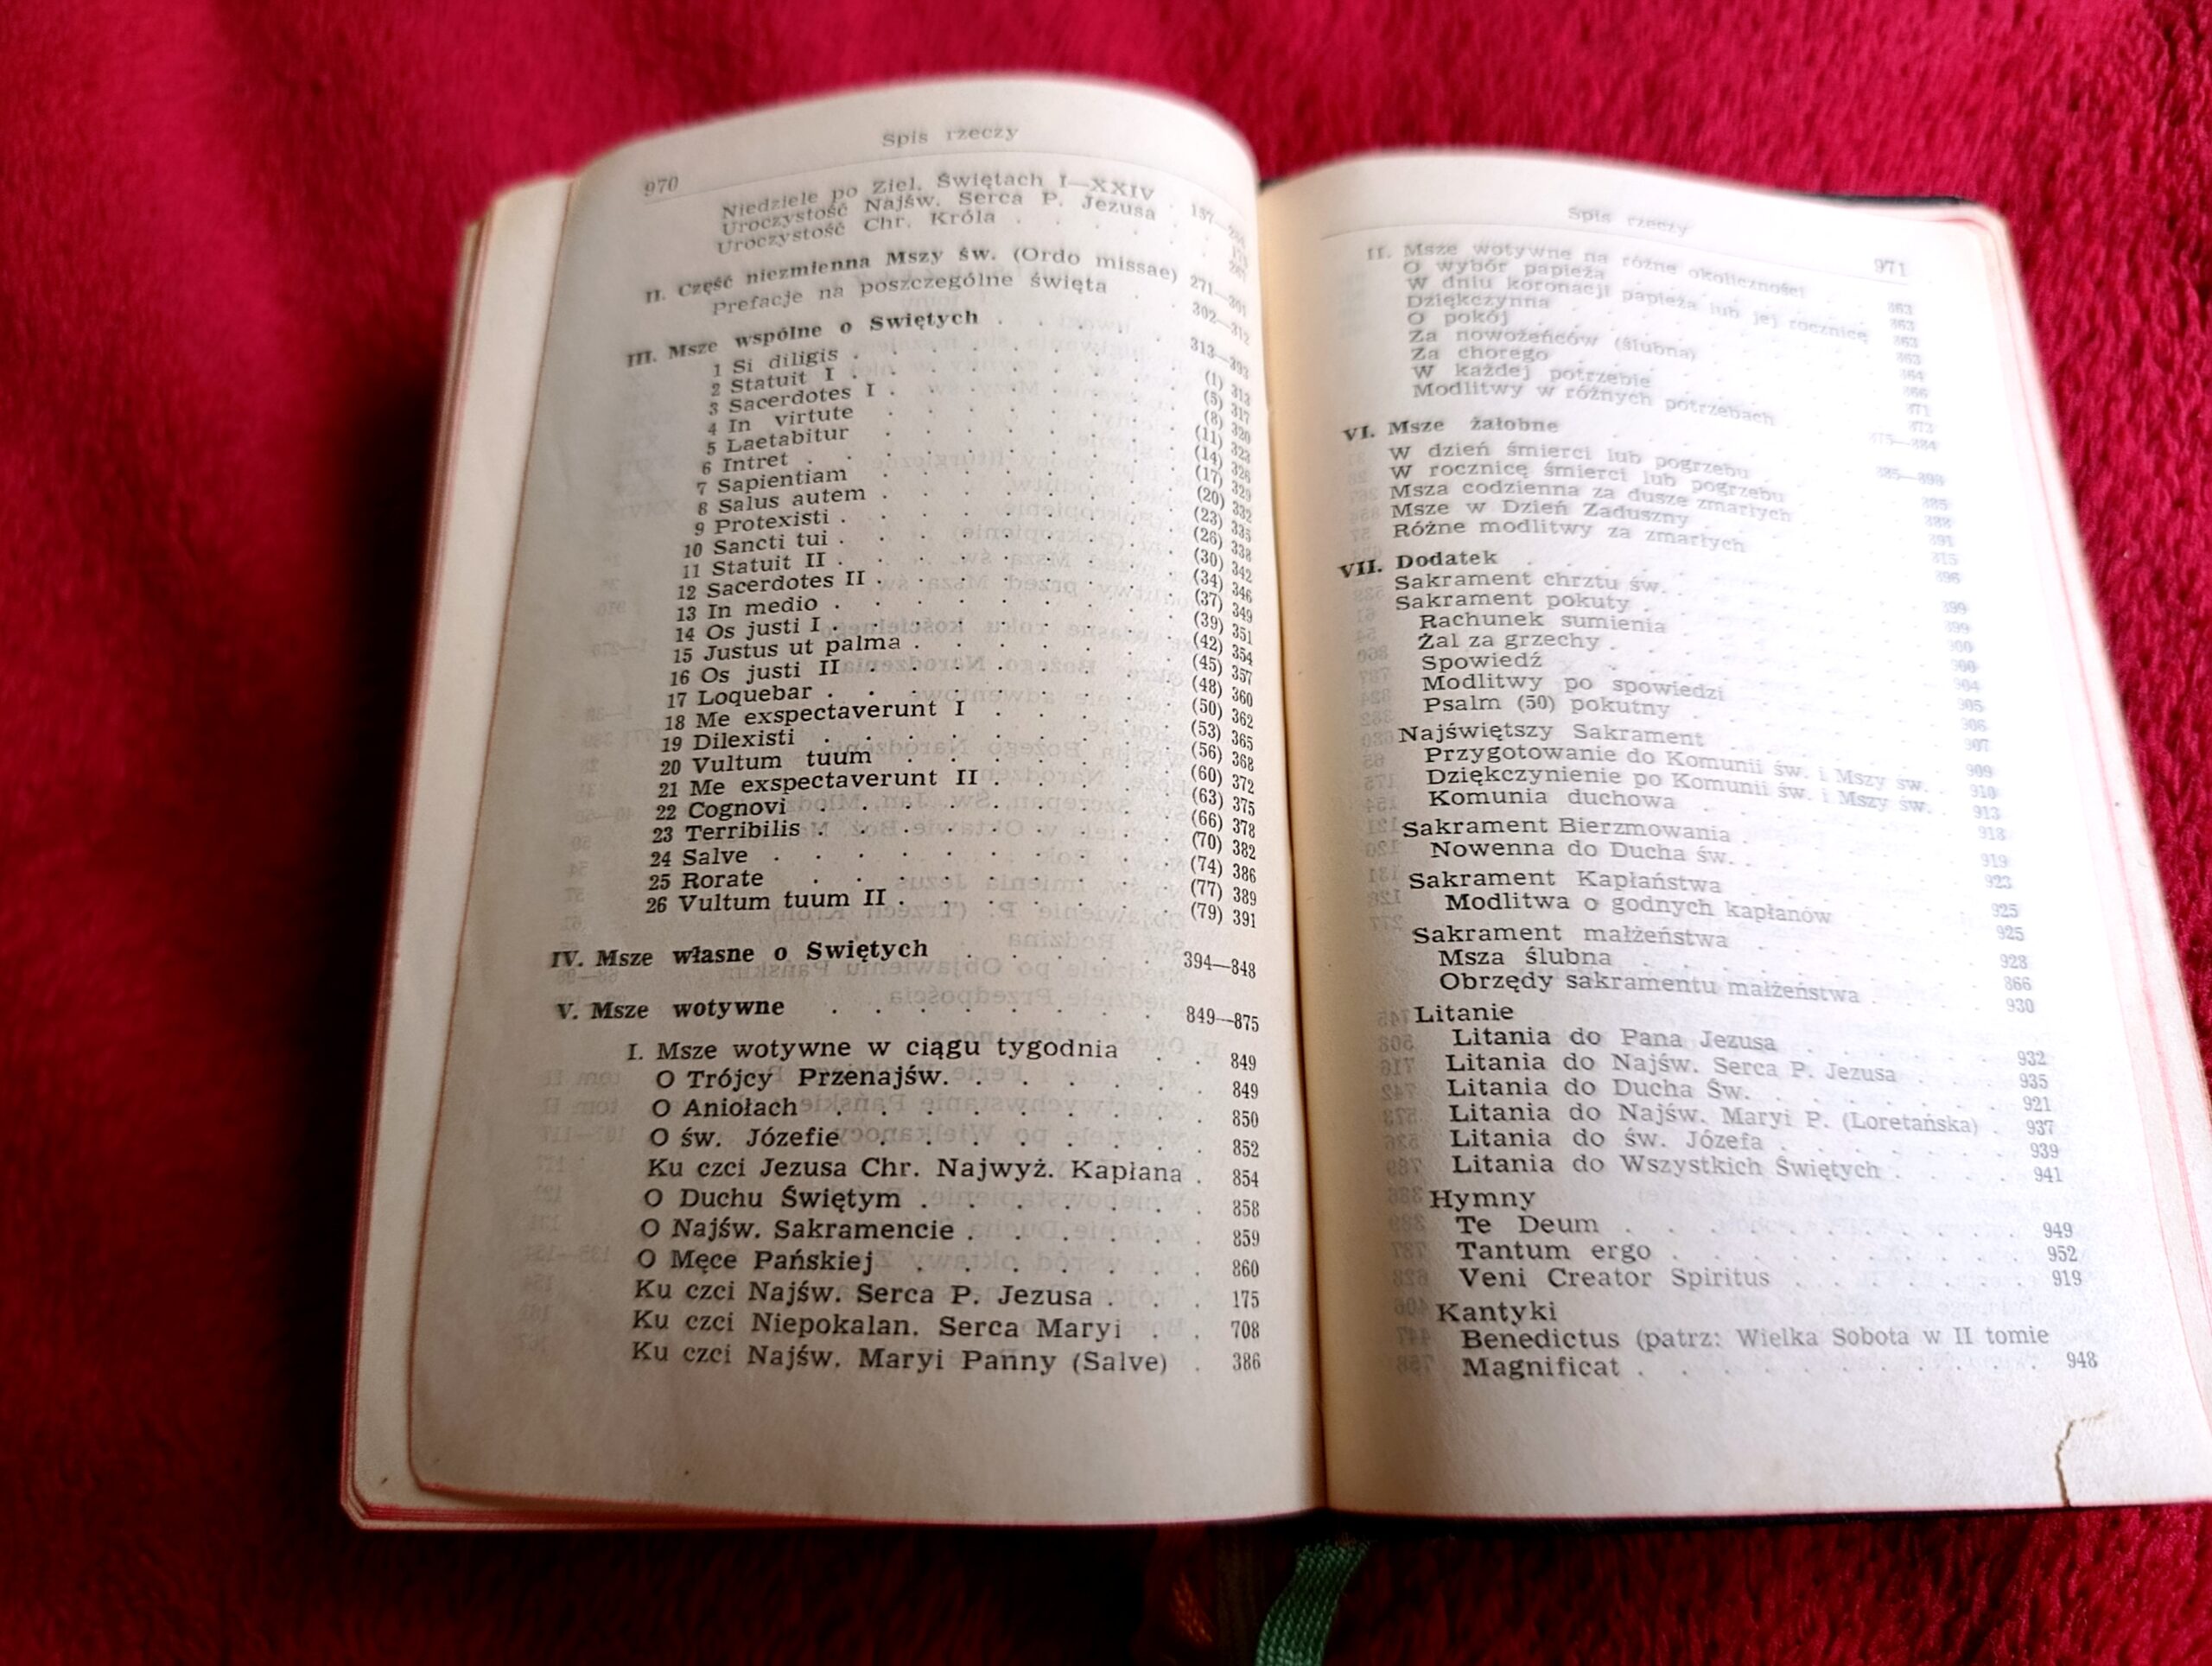 Spis rzeczy
970
Niedziele po Ziel. Świętach I—XXIV
Uroczystość Najśw. Serca P. Jezusa
Uroczystość Chr. Króla
II. Część niezmienna Mszy św. (Ordo missae) 271—301
Prefacje na poszczególne święta 302—312
III. Msze wspólne o Swiętych 313—393
1 Si diligis (1) 313
2 Statuit I (5) 317
3 Sacerdotes I (8) 320
4 In virtute (11) 323
5 Laetabitur (14) 326
6 Intret (17) 329
7 Sapientiam (20) 332
8 Salus autem (23) 335
9 Protexisti (26) 338
10 Sancti tui (30) 342
11 Statuit II (34) 346
12 Sacerdotes II (37) 349
13 In medio (39) 351
14 Os justi I (42) 354
15 Justus ut palma (45) 357
16 Os justi II (48) 360
17 Loquebar (50) 362
18 Me exspectaverunt I (53) 365
19 Dilexisti (56) 368
20 Vultum tuum (60) 372
21 Me exspectaverunt II (63) 375
22 Cognovi (66) 378
23 Terribilis (70) 382
24 Salve (74) 386
25 Rorate (77) 389
26 Vultum tuum II (79) 391
IV. Msze własne o Swiętych 394—848
V. Msze wotywne 849—875
I. Msze wotywne w ciągu tygodnia 849
O Trójcy Przenajśw. 849
O Aniołach 850
O św. Józefie 852
Ku czci Jezusa Chr. Najwyż. Kapłana 854
O Duchu Świętym 858
O Najśw. Sakramencie 859
O Męce Pańskiej 860
Ku czci Najśw. Serca P. Jezusa 175
Ku czci Niepokalan. Serca Maryi 708
Ku czci Najśw. Maryi Panny (Salve) 386
Spis rzeczy
971
II. Msze wotywne na różne okoliczności
O wybór papieża
W dniu koronacji papieża lub jej rocznicę
Dziękczynna
O pokój
Za nowożeńców (ślubna)
Za chorego
W każdej potrzebie
Modlitwy w różnych potrzebach
VI. Msze żałobne
W dzień śmierci lub pogrzebu
W rocznicę śmierci lub pogrzebu
Msza codzienna za dusze zmarłych
Msze w Dzień Zaduszny
Różne modlitwy za zmarłych
VII. Dodatek
Sakrament chrztu św.
Sakrament pokuty
Rachunek sumienia
Żal za grzechy
Spowiedź
Modlitwy po spowiedzi
Psalm (50) pokutny
Najświętszy Sakrament
Przygotowanie do Komunii św. i Mszy św.
Dziękczynienie po Komunii św. i Mszy św.
Komunia duchowa
Sakrament Bierzmowania
Nowenna do Ducha św.
Sakrament Kapłaństwa
Modlitwa o godnych kapłanów
Sakrament małżeństwa
Msza ślubna
Obrzędy sakramentu małżeństwa
Litanie
Litania do Pana Jezusa 932
Litania do Najśw. Serca P. Jezusa 935
Litania do Ducha Św. 921
Litania do Najśw. Maryi P. (Loretańska) 937
Litania do św. Józefa 939
Litania do Wszystkich Świętych 941
Hymny
Te Deum 949
Tantum ergo 952
Veni Creator Spiritus 919
Kantyki
Benedictus (patrz: Wielka Sobota w II tomie
Magnificat 948